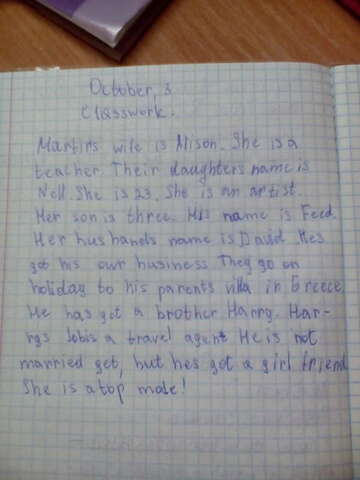 October, 3
Classwork.
Martins wife is Alison. She is a
teacher. Their daughters name is
Nell. She is 23. She is an artist.
Her son is three. His name is Fred.
Her husbands name is David. Hes
got his our business. They go on
holiday to his parents villa in Greece
He has got a brother Harry. Har-
rys Jobis a travel agent. He is not
married get, but hes got a girl friend
She is a top mode!